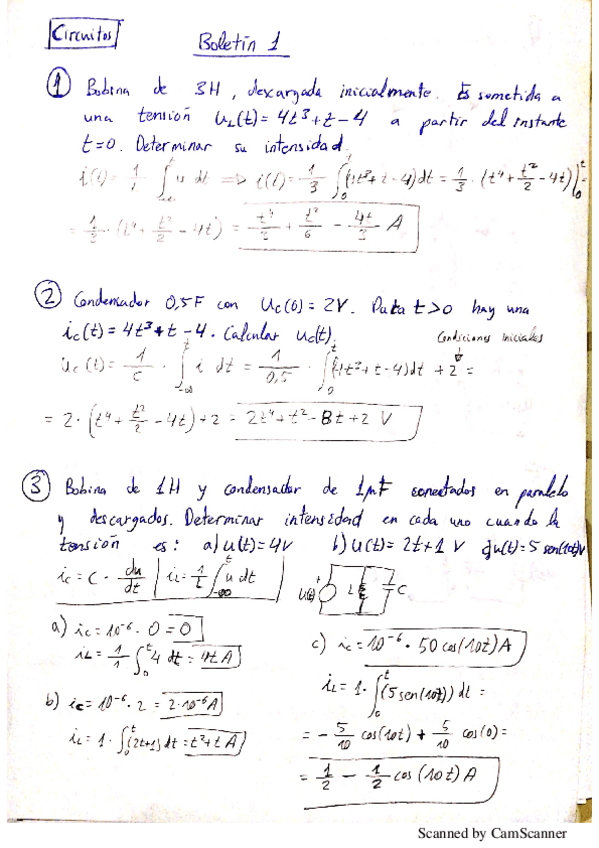 Circuitos
Boletín 1
① Bobina de 3H, descargada inicialmente. Es sometida a
una tensión u_L(t) = 4t³+t-4 a partir del instante
t=0. Determinar su intensidad.
i(t) = 1/L ∫_{-∞}^{t} u dt ⇒ i(t) = 1/3 ∫_0^t (4t³+t-4)dt = 1/3 · (t⁴+t²/2-4t)|_0^t
= 1/3 · (t⁴+t²/2-4t) = t⁴/3 + t²/6 - 4t/3 A
② Condensador 0,5F con u_c(0) = 2V. Para t>0 hay una
i_c(t) = 4t³+t-4. Calcular u_c(t). Condiciones iniciales
u_c(t) = 1/C · ∫_{-∞}^{t} i dt = 1/0,5 · ∫_0^t (4t³+t-4)dt + 2 =
= 2·(t⁴+t²/2-4t)+2 = 2t⁴+t²-8t+2 V
③ Bobina de 1H y condensador de 1μF conectados en paralelo
y descargados. Determinar intensidad en cada uno cuando la
tensión es: a) u(t)=4V b) u(t)=2t+1 V c) u(t)=5 sen(10t)V
i_c = C · du/dt | i_L = 1/L ∫_{-∞}^{t} u dt
u(t) + L C
a) i_c = 10⁻⁶ · 0 = 0
i_L = 1/1 ∫_0^t 4 dt = 4t A
b) i_c = 10⁻⁶ · 2 = 2·10⁻⁶ A
i_L = 1 · ∫_0^t (2t+1)dt = t²+t A
c) i_c = 10⁻⁶ · 50 cos(10t) A
i_L = 1 · ∫_0^t (5 sen(10t)) dt =
= - 5/10 cos(10t) + 5/10 cos(0) =
= 1/2 - 1/2 cos(10t) A
Scanned by CamScanner